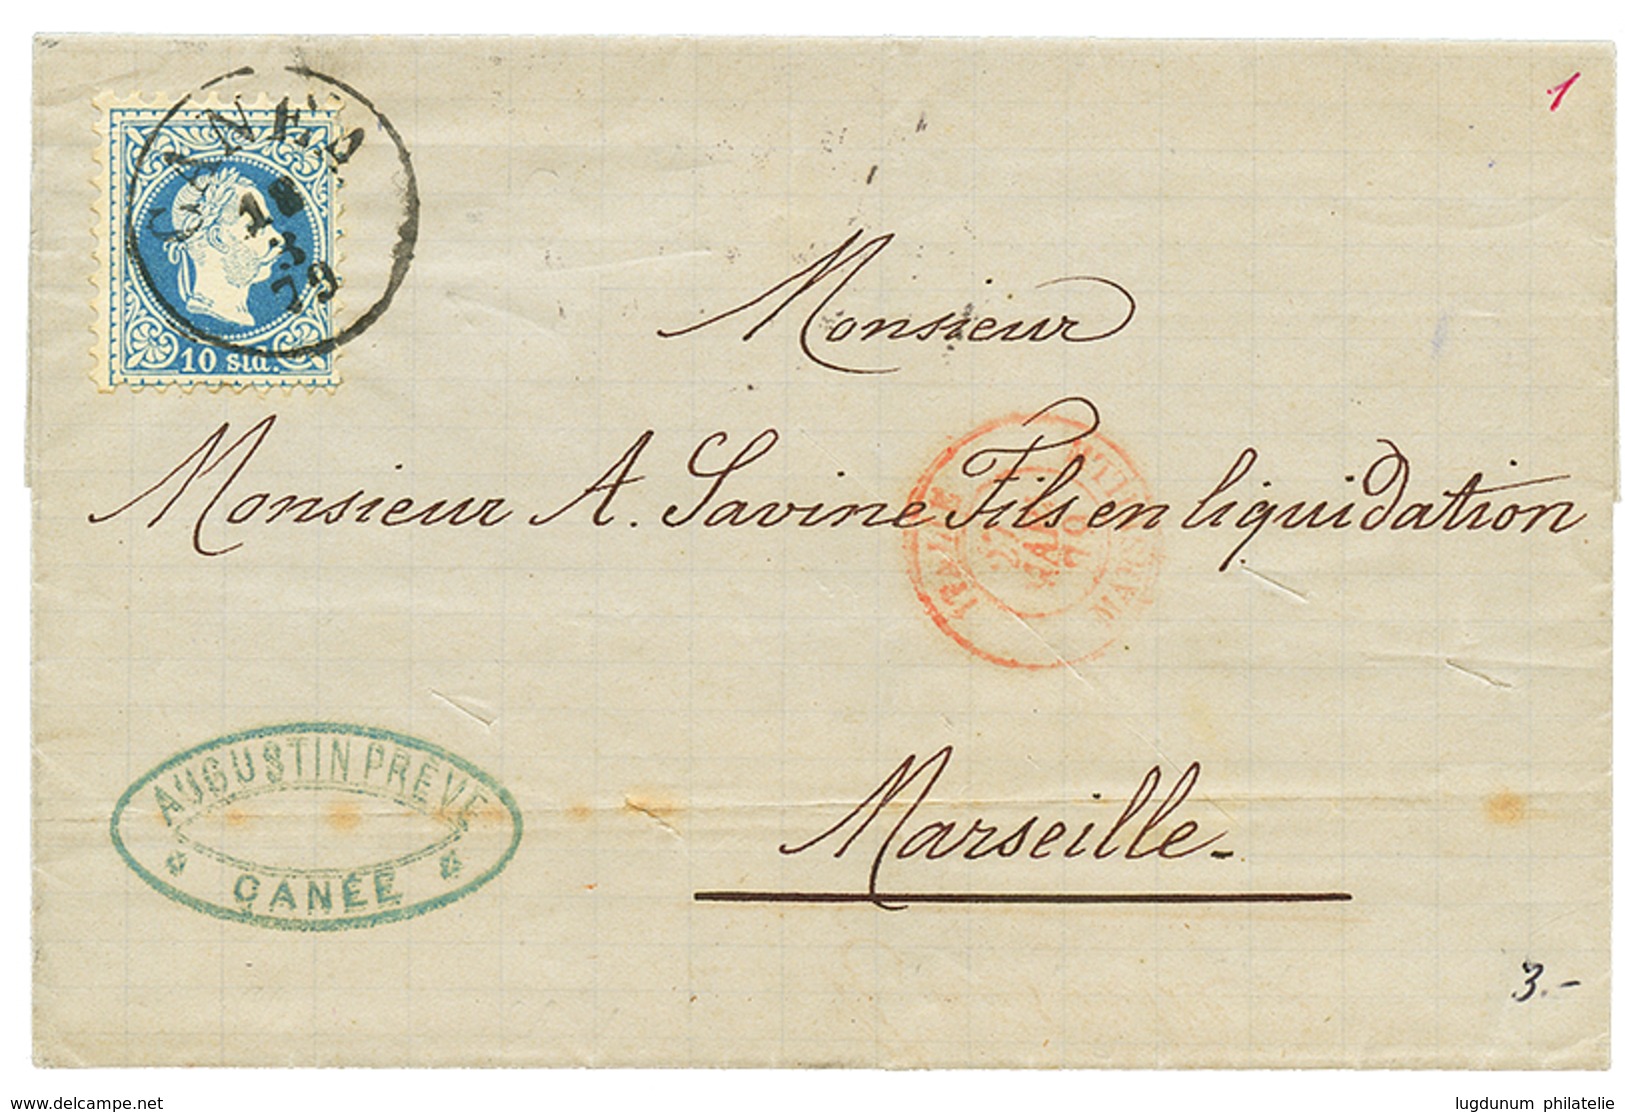 1
CANEA
18
3
79
10 sld.
Monsieur
Monsieur A. Savine Fils en liquidation
ITALIE
27
MARS
79
AUGUSTIN PREVE
CANÉE
Marseille
3.-
www.delcampe.net
lugdunum philatelie